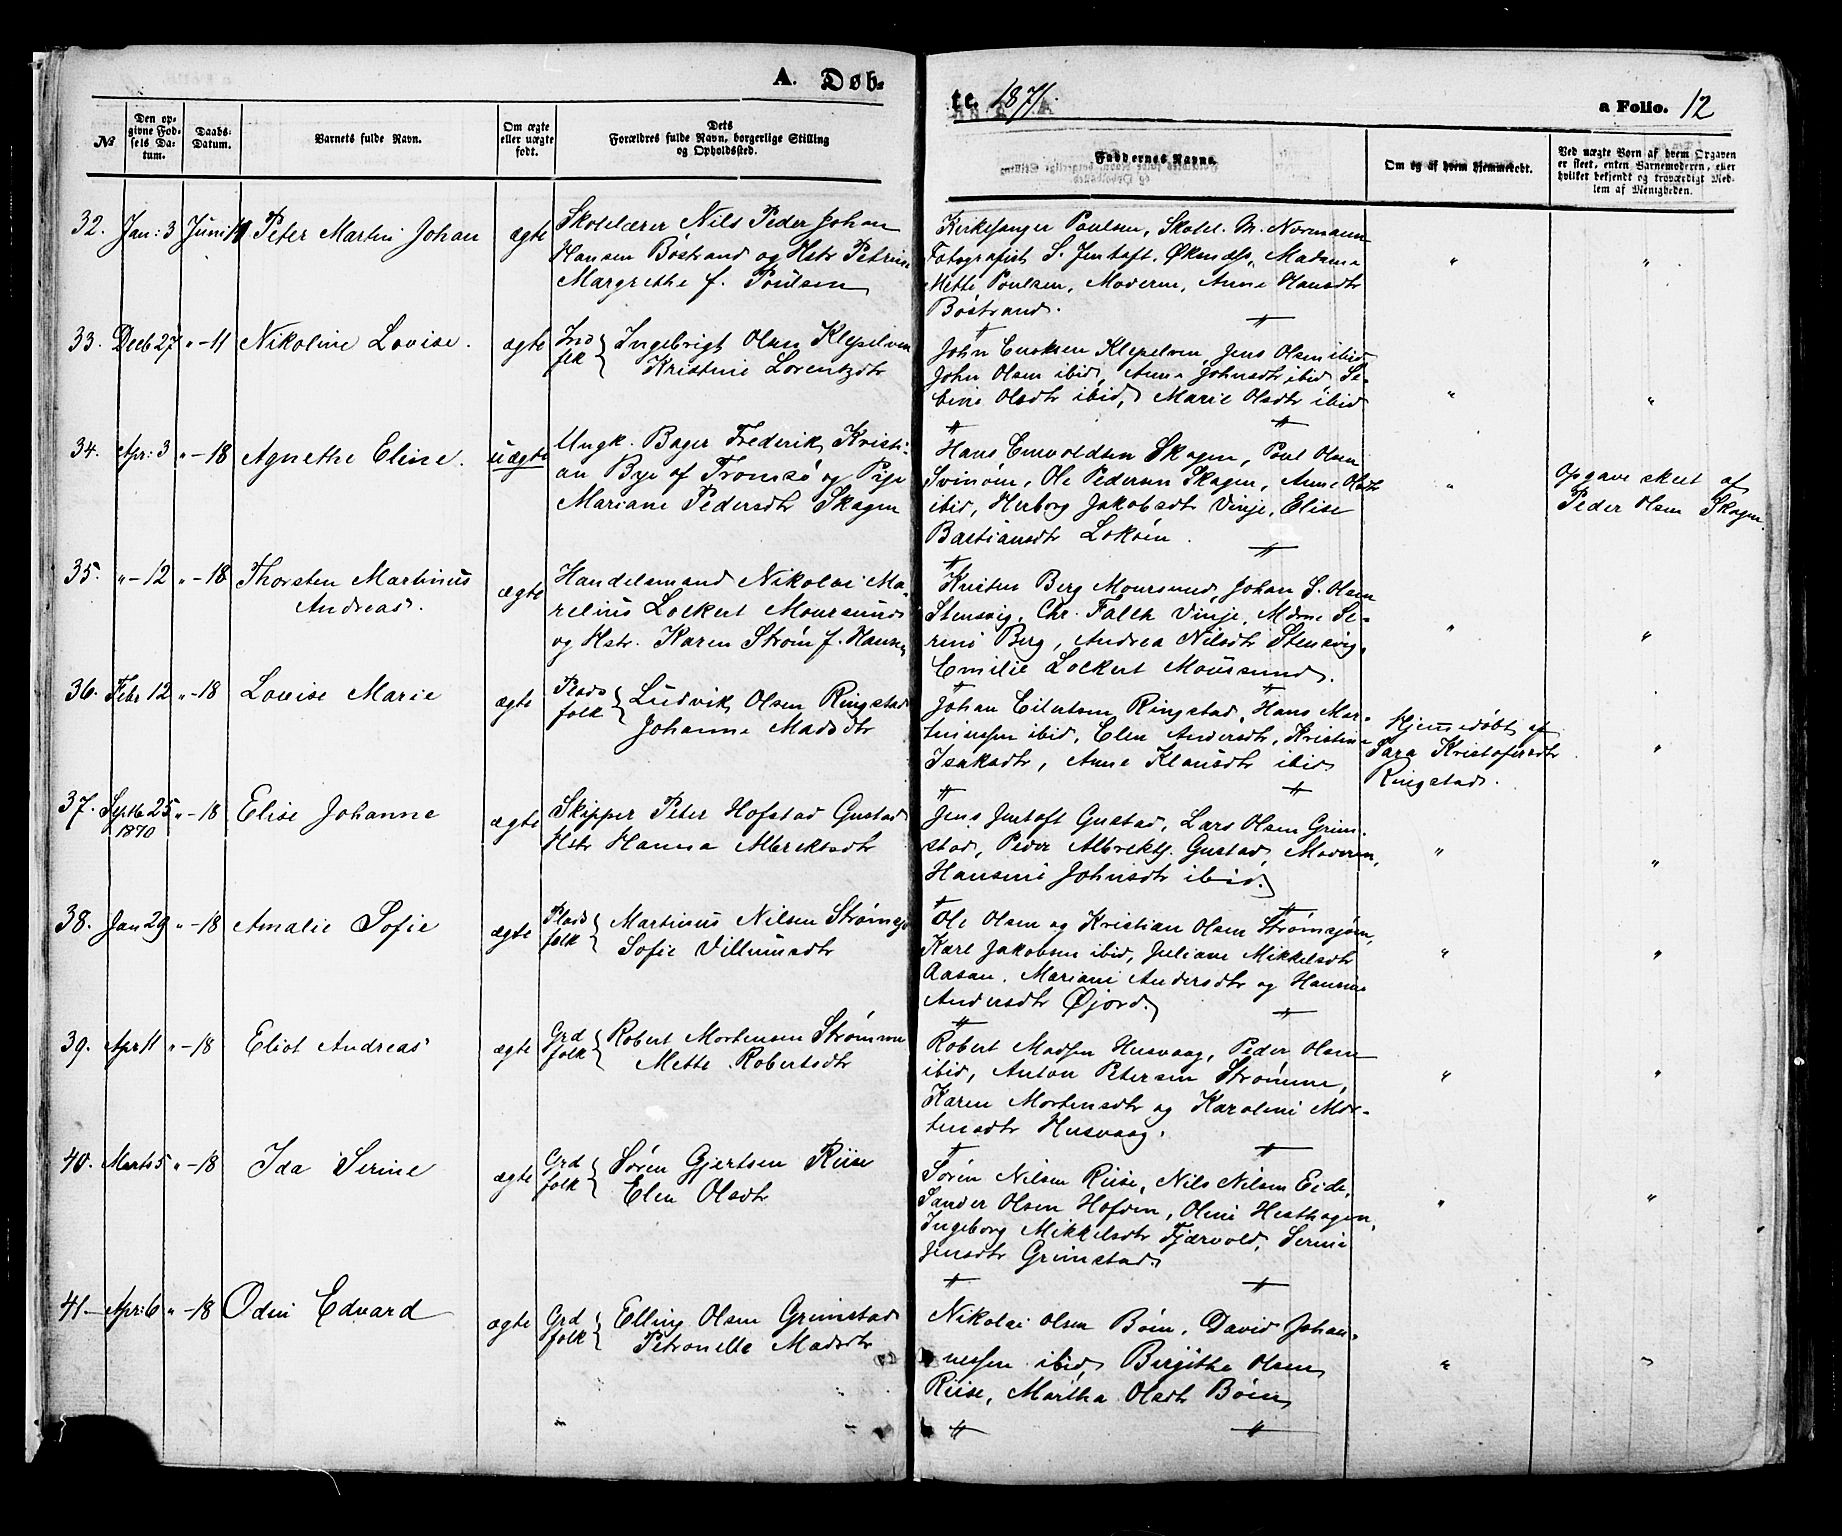 A. Døb-
te. 1871.
a Folio. 12
№
Den op-
givne Fød-
sels Da-
tum.
Daabs-
Datum.
Barnets fulde Navn.
Om ægte
eller uægte
født.
Dets
Forældres fulde Navn, borgerlige Stilling
og Opholdssted.
Faddernes Navne.
Om og af hvem hjemmedøbt.
Ved uægte Børn af hvem Opgaven
er skeet, enten Barnemoderen, eller
hvilket bekjendt og troværdigt Med-
lem af Menigheden.
32. Jan: 3 Juni 11 Peter Martin Johan ægte
Skolelærer Nils Peder Johan
Hansen Bøstrand og Hstr Petrine
Margrethe f. Poulsen
Kirkesanger Poulsen, Skolel. M. Normann
Fotografist S. Jentoft, Øknæs, Madame
Mette Poulsen, Moderen, Anne Hansdtr
Bøstrand.
33. Decb 27 " - 11 Nikoline Lovise. ægte
Ind folk { Ingebrigt Olsen Klepelven
Kristine Lorentzdtr
John Klepelven, Jens Olsen ibid
John Olsen ibid, Anne Johnsdtr ibid, Se-
rine Olsdtr ibid, Marie Olsdtr ibid
34. Apr: 3 " - 18 Agnethe Eline. uægte
Ungk. Bager Frederik Kristi-
an Bye af Tromsø og Pige
Mariane Pedersdtr Skagen
Hans Envoldsen Skagen, Povl Olsen
Svinøen, Ole Pedersen Skagen, Anne Olsdtr
ibid, Herborg Jakobsdtr Vinje, Elise
Bastiansdtr Lokøen.
Opgave skeet af
Peder Olsen Skagen.
35. " - 12 " - 18 Thorsten Martinus
Andreas. ægte
Handelsmand Nikolai Ma-
relius Lockert Moursund
og Hstr. Karen Strøm f. Hansen
Kristen Berg Moursund, Johan S. Olsen
Stensvig, Chr. Falch Vinje, Mdme Se-
rine Berg, Andrea Nilsdtr Stensvig,
Emilie Lockert Moursund.
36. Febr 12 " - 18 Lovise Marie ægte
Plads folk { Ludvik Olsen Ringstad
Johanne Madsdtr
Johan Eilertsen Ringstad, Hans Mar-
tinussen ibid, Elen Andersdtr, Kristine
Isaksdtr, Anne Klausdtr ibid
Hjemmedøbt af
Sara Kristofersdtr
Ringstad.
37. Septb 25 1870 " - 18 Elise Johanne ægte
Skipper Peter Hofstad Gustad
Hstr Hanna Albrektsdtr
Jens Jentoft Gustad, Lars Olsen Grim-
stad, Peder Albrekts. Gustad, Moderen,
Hansine Johnsdtr ibid.
38. Jan 29 " - 18 Amalie Sofie ægte
Plads folk { Martinus Nilsen Strømsjø
Sofie Villumsdtr
Ole Olsen og Kristian Olsen Strømsjøen,
Karl Jakobsen ibid, Juliane Mikkelsdtr
Aasan, Mariane Andersdtr og Hansine
Andersdtr Øjord.
39. Apr 11 " - 18 Eliot Andreas ægte
Grd folk { Robert Mortensen Strømme
Mette Robertsdtr
Robert Madsen Husvaag, Peder Olsen
ibid, Anton Petersen Strømme,
Karen Mortensdtr og Karoline Mor-
tensdtr Husvaag.
40. Marts 5 " - 18 Ida Serine ægte
Grd folk { Søren Gjertsen Riise
Elen Olsdtr
Søren Nilsen Riise, Nils Nilsen Eide,
Sander Olsen Hofden, Oline Hesthagen,
Ingeborg Mikkelsdtr Fjærvold, Serine
Jensdtr Grimstad.
41. Apr: 6 " - 18 Odin Edvard ægte
Grd folk { Elling Olsen Grimstad
Petronelle Madsdtr
Nikolai Olsen Bøen, David Johan-
nessen ibid, Birgithe Olsen
Riise, Martha Olsdtr Bøen